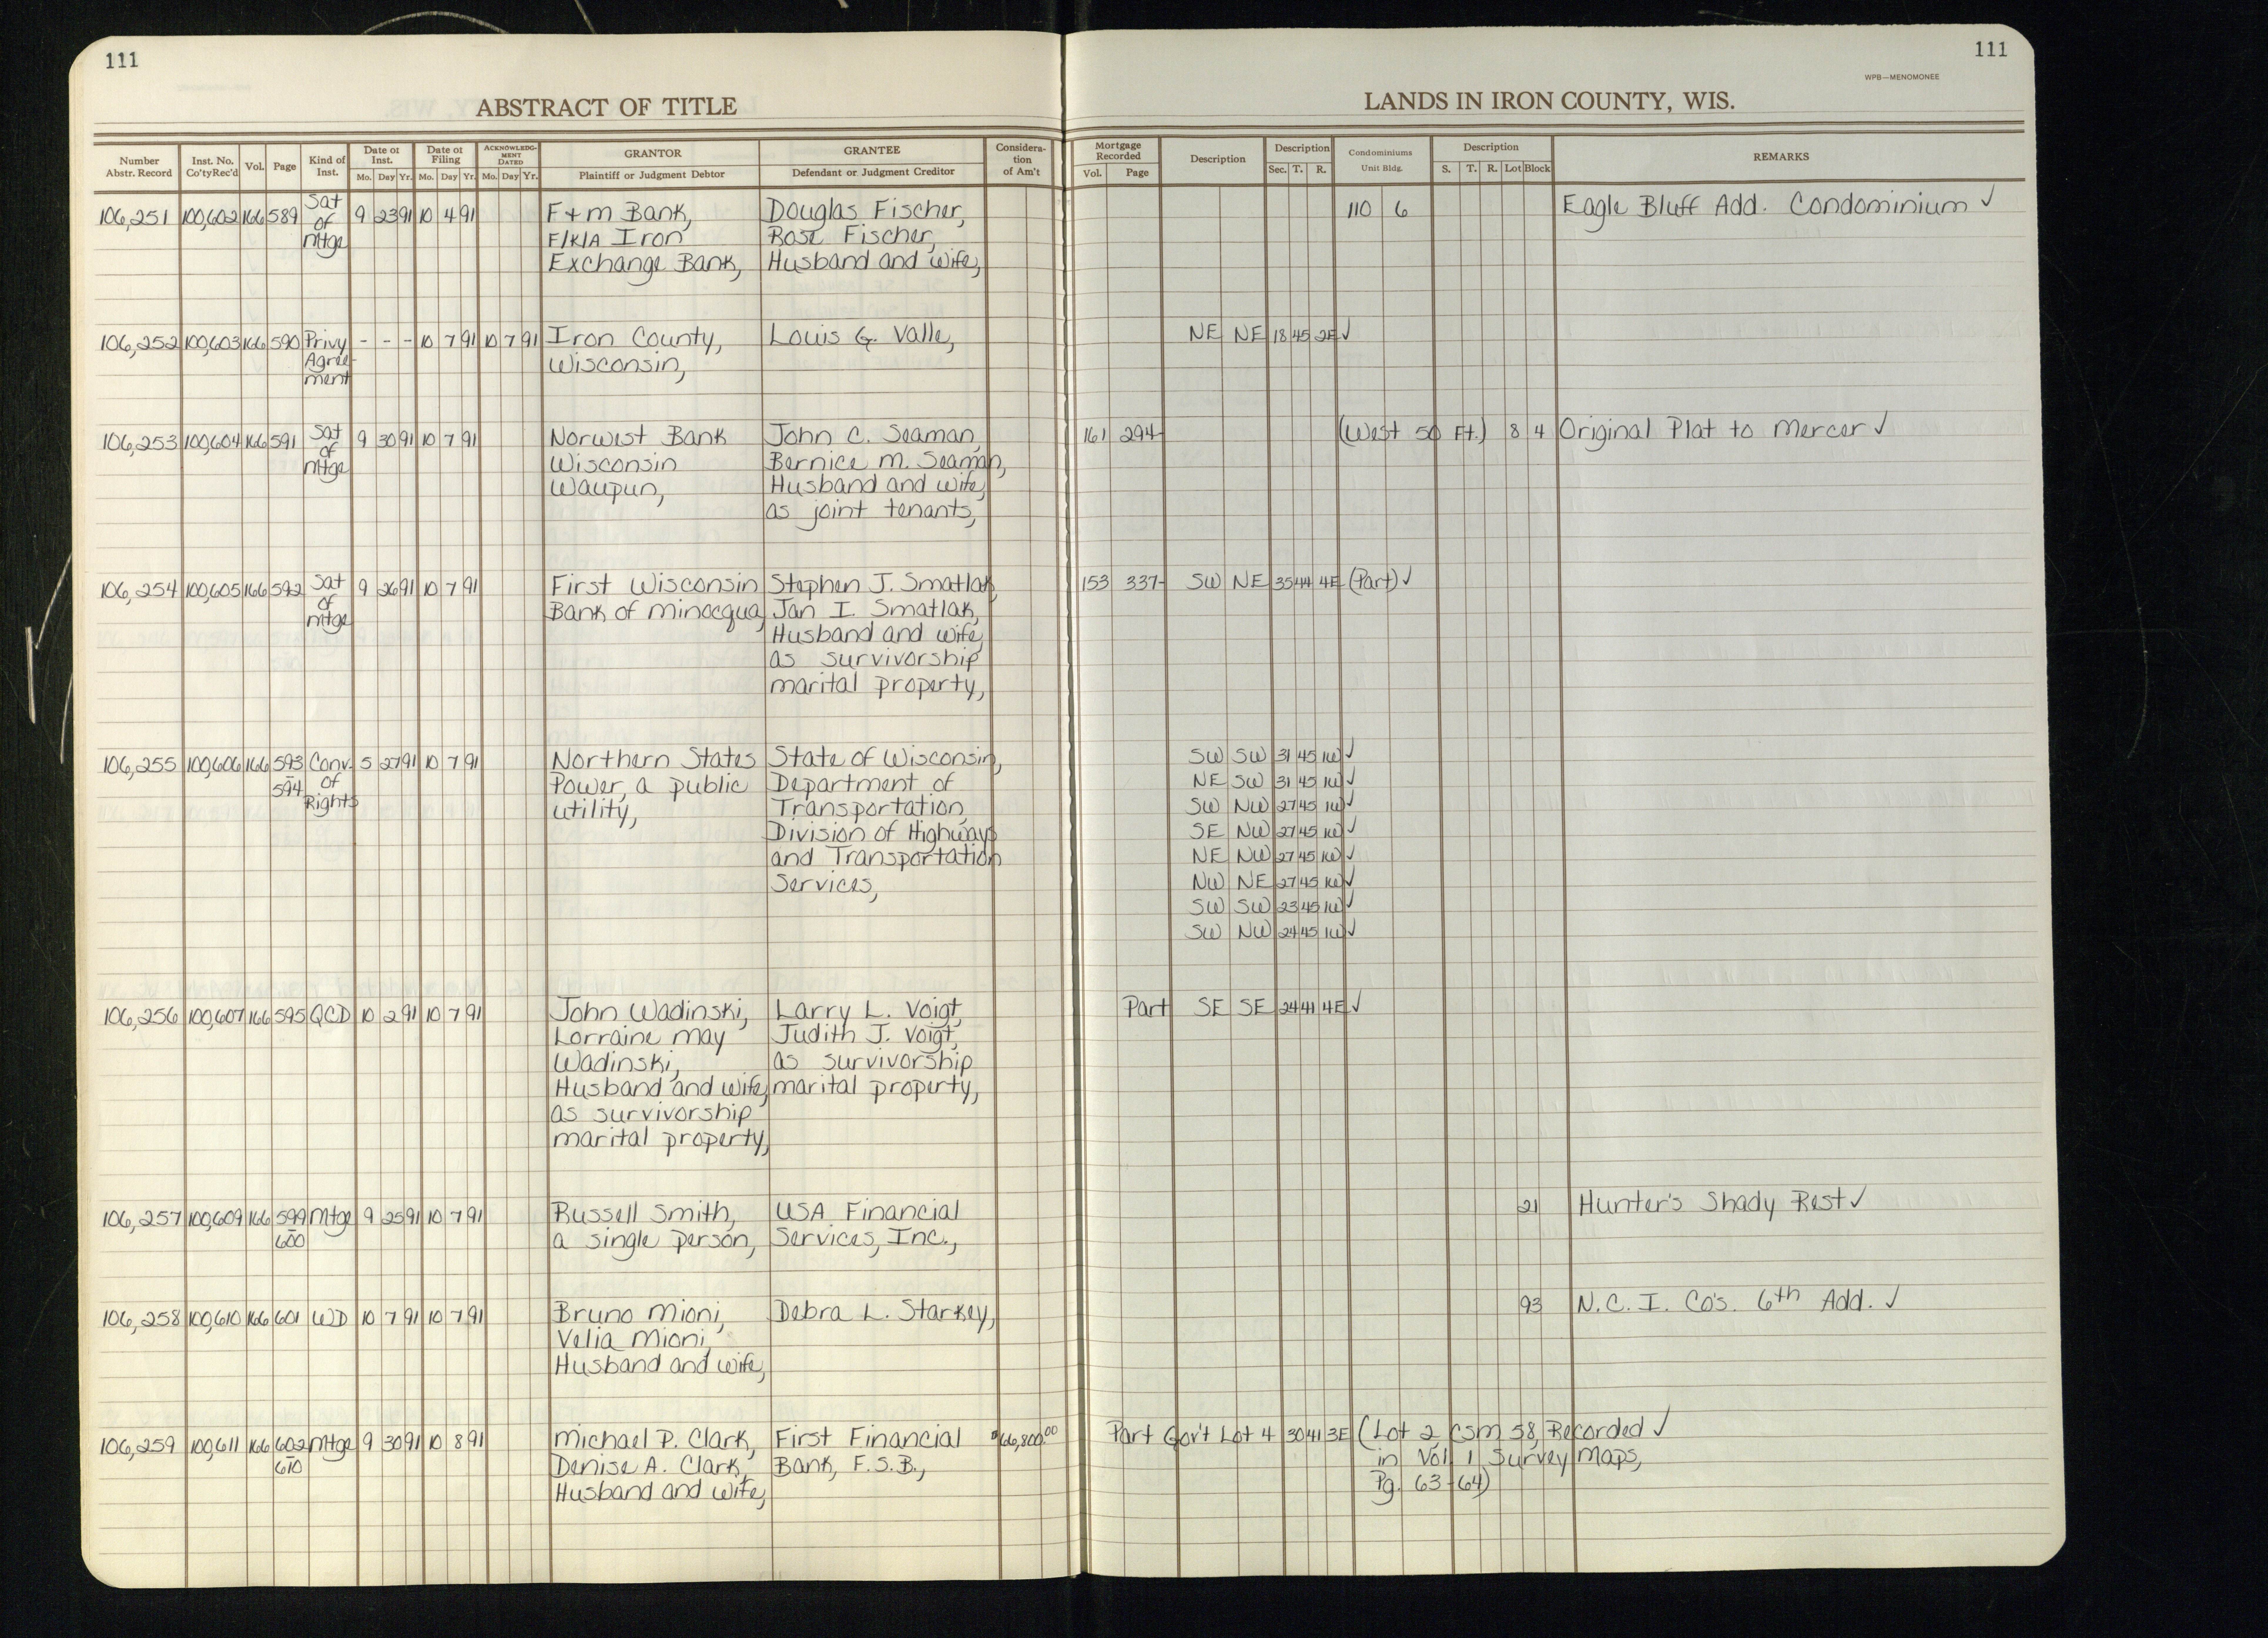 111
111
WPB—MENOMONEE
ABSTRACT OF TITLE
LANDS IN IRON COUNTY, WIS.
Number Abstr. Record | Inst. No. Co'tyRec'd | Vol. | Page | Kind of Inst. | Date of Inst. Mo. Day Yr. | Date of Filing Mo. Day Yr. | ACKNOWLEDG-MENT DATED Mo. Day Yr. | GRANTOR Plaintiff or Judgment Debtor | GRANTEE Defendant or Judgment Creditor | Considera-tion of Am't | Mortgage Recorded Vol. Page | Description | Description Sec. T. R. | Condominiums Unit Bldg. | Description S. T. R. Lot Block | REMARKS
106,251 100,602 166 589 Sat 9 23 91 10 4 91 F+M Bank, Douglas Fischer, 110 6 Eagle Bluff Add. Condominium ✓
of F/K/A Iron Rose Fischer,
Mtge Exchange Bank, Husband and wife,
106,252 100,603 166 590 Privy - - - 10 7 91 10 7 91 Iron County, Louis G. Valle, NE NE 18 45 2E ✓
Agree- Wisconsin,
ment
106,253 100,604 166 591 Sat 9 30 91 10 7 91 Norwest Bank John C. Seaman, 161 294 (West 50 Ft.) 8 4 Original Plat to Mercer ✓
of Wisconsin Bernice M. Seaman,
Mtge Waupun, Husband and wife,
as joint tenants,
106,254 100,605 166 592 Sat 9 26 91 10 7 91 First Wisconsin Stephen J. Smatlak, 153 337 SW NE 35 44 4E (Part) ✓
of Bank of Minocqua, Jan I. Smatlak,
Mtge Husband and wife,
as survivorship
marital property,
106,255 100,606 166 593 Conv. 5 27 91 10 7 91 Northern States State of Wisconsin, SW SW 31 45 1W ✓
- 594 of Power, a public Department of NE SW 31 45 1W ✓
Rights utility, Transportation, SW NW 27 45 1W ✓
Division of Highways SE NW 27 45 1W ✓
and Transportation NE NW 27 45 1W ✓
Services, NW NE 27 45 1W ✓
SW SW 23 45 1W ✓
SW NW 24 45 1W ✓
106,256 100,607 166 595 QCD 10 2 91 10 7 91 John Wadinski, Larry L. Voigt, Part SE SE 24 41 4E ✓
Lorraine May Judith J. Voigt,
Wadinski, as survivorship
Husband and wife, marital property,
as survivorship
marital property,
106,257 100,609 166 599 Mtge 9 25 91 10 7 91 Russell Smith, USA Financial 21 Hunter's Shady Rest ✓
- 600 a single person, Services, Inc.,
106,258 100,610 166 601 WD 10 7 91 10 7 91 Bruno Mioni, Debra L. Starkey, 93 N.C.I. Co's. 6th Add. ✓
Velia Mioni,
Husband and wife,
106,259 100,611 166 602 Mtge 9 30 91 10 8 91 Michael P. Clark, First Financial $66,800.00 Part Gov't Lot 4 30 41 3E (Lot 2, CSM 58, Recorded ✓
- 610 Denise A. Clark, Bank, F.S.B., in Vol 1 Survey Maps,
Husband and wife, Pg. 63-64)